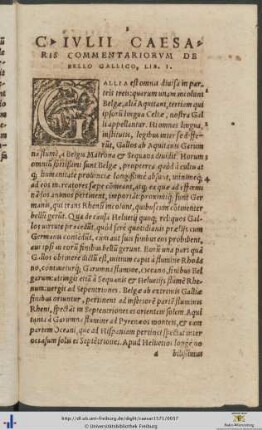 C. IVLII CAESA-
RIS COMMENTARIORVM DE
BELLO GALLICO, LIB. I.
GALLIA est omnis diuisa in par-
tes treis: quarum unam incolunt
Belgæ, aliã Aquitani, tertiam qui
ipsorũ lingua Celtæ, nostra Gal-
li appellantur. Hi omnes lingua,
institutis, legibus inter se diffe-
rũt, Gallos ab Aquitanis Garum
na flumẽ, à Belgis Matrona & Sequana diuidit. Horum
omniũ fortissimi sunt Belgæ, propterea quòd à cultu at
que humanitate prouinciæ longissimè absunt, minimeq́;
ad eos mercatores sæpe commeãt, atq; ea quæ ad effemi
nãdos animos pertinent, important: proximiq́; sunt Ger
manis, qui trans Rhenũ incolunt, quibuscum continenter
bellũ gerũt. Qua de causa Heluetij quoq; reliquos Gal
los uirtute præcedũt, quòd ferè quotidianis prælijs cum
Germanis contẽdũt, cum aut suis finibus eos prohibent,
aut ipsi in eorũ finibus bellũ gerunt. Eorũ una pars quã
Gallos obtinere dictũ est, initium capit à flumine Rhoda
no, contineturq́; Garumna flumine, Oceano, finibus Bel
garum: attingit etiã à Sequanis & Heluetijs flumẽ Rhe-
num: uergit ad Septentriones. Belgæ ab extremis Galliæ
finibus oriuntur, pertinent ad inferiorẽ partẽ fluminis
Rheni, spectant in Septentriones et orientem solem. Aqui
tania à Garumna flumine ad Pyrenæos montes, & eam
partem Oceani, quæ ad Hispaniam pertinet, spectat inter
occasum solis et Septentriones. Apud Heluetios longè no
a bilissimus
http://dl.ub.uni-freiburg.de/diglit/caesar1571/0017
© Universitätsbibliothek Freiburg